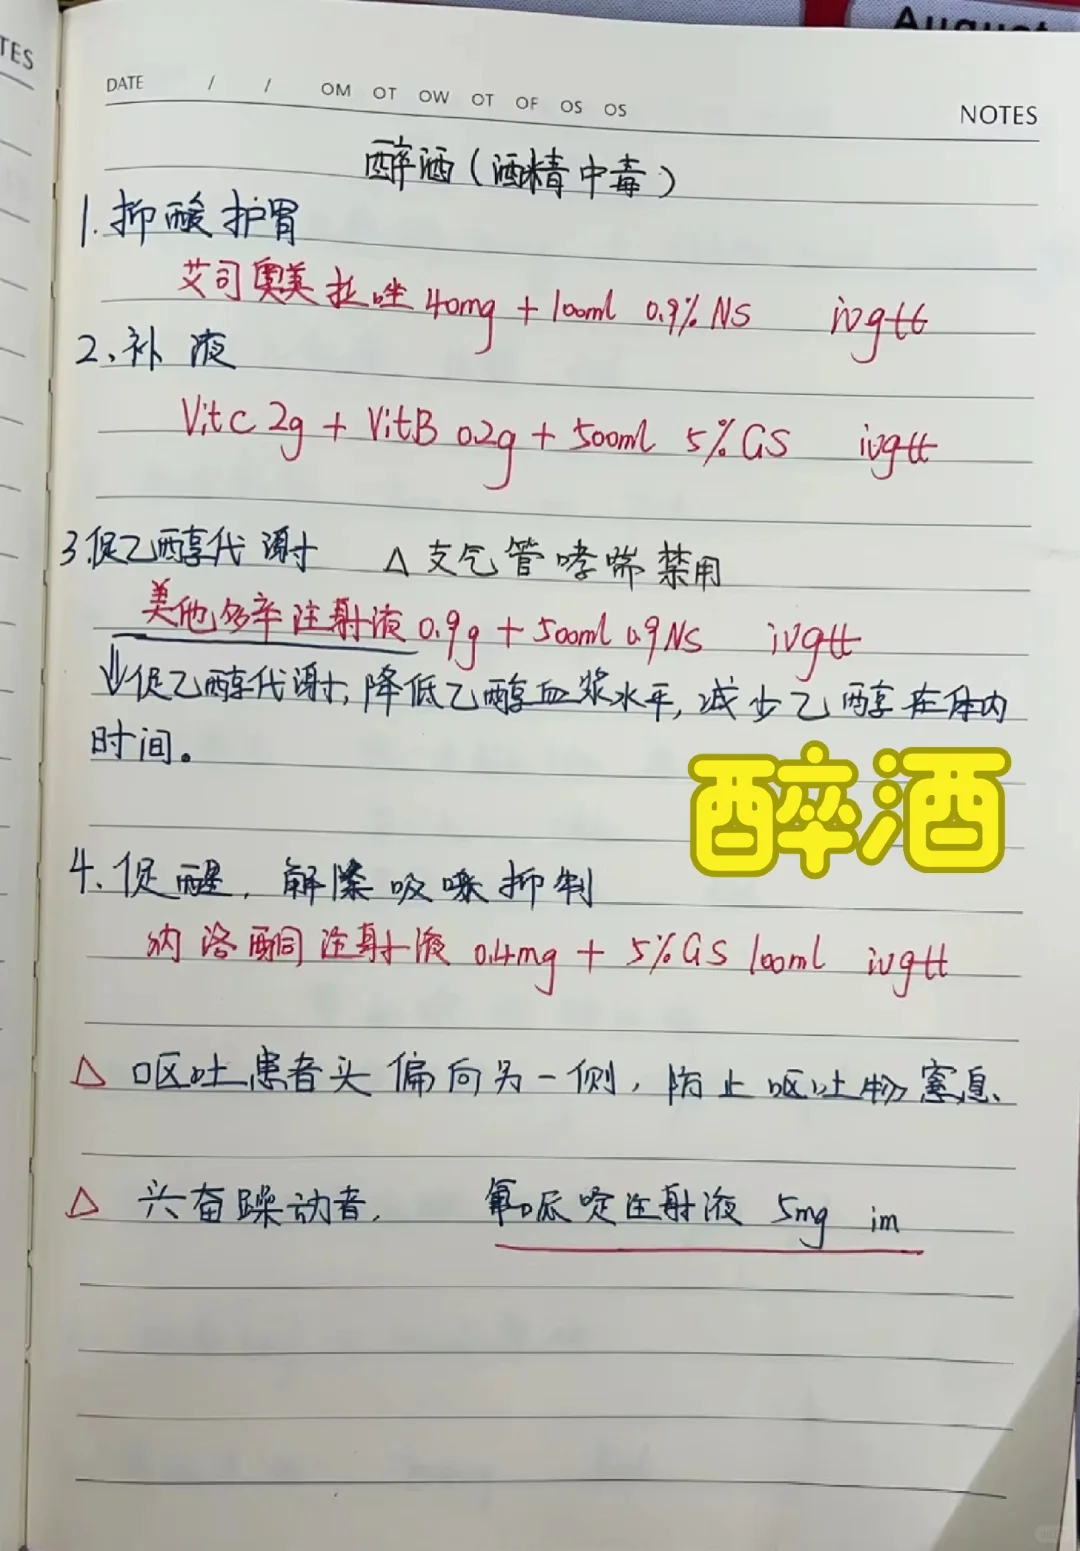 TES
August
DATE / / OM OT OW OT OF OS OS
NOTES
醉酒(酒精中毒)
1.抑酸护胃
艾司奥美拉唑40mg + 100ml 0.9% NS ivgtt
2、补液
Vitc 2g + VitB 0.2g + 500ml 5% GS ivgtt
3.促乙醇代谢 △支气管哮喘禁用
美他多辛注射液0.9g + 500ml 0.9NS ivgtt
↓促乙醇代谢,降低乙醇血浆水平,减少乙醇在体内
时间。
醉酒
4、促醒,解除吸嗽抑制
纳洛酮注射液 0.4mg + 5%GS 100ml ivgtt
△ 呕吐患者头偏向另一侧,防止呕吐物窒息、
△ 兴奋躁动者, 氟哌啶注射液 5mg im